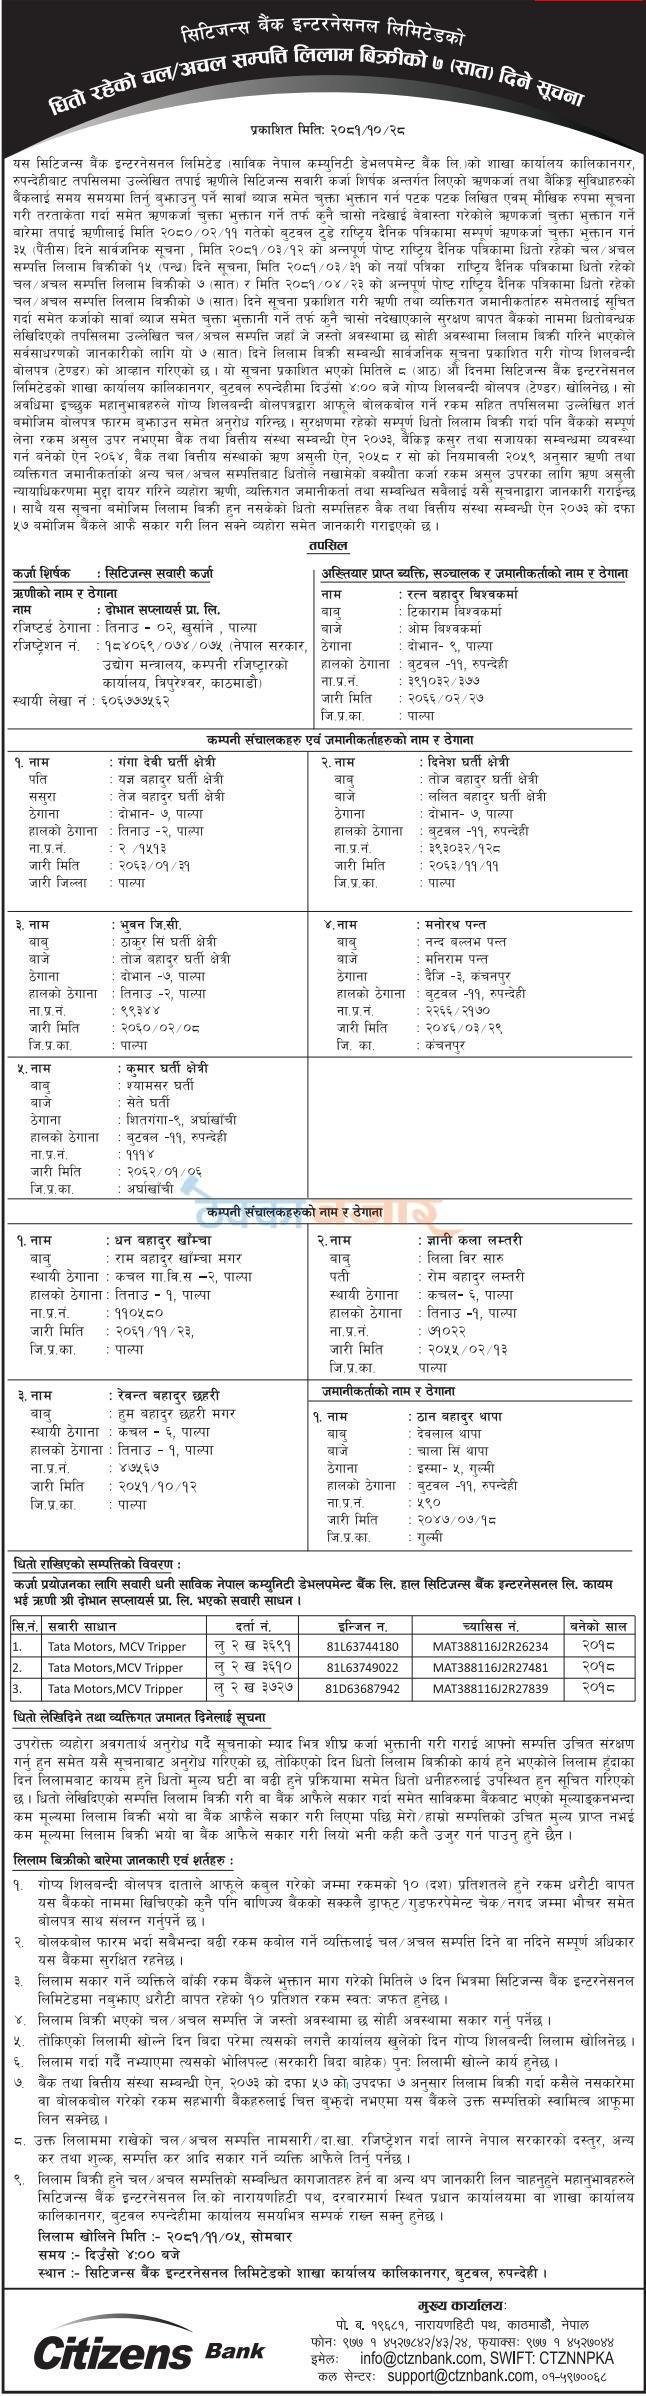 सिटिजन्स बैंक इन्टरनेसनल लिमिटेडको
धितो रहेको चल/अचल सम्पत्ति लिलाम बिक्रीको ७ (सात) दिने सूचना
प्रकाशित मिति: २०८१/१०/२८
यस सिटिजन्स बैंक इन्टरनेसनल लिमिटेड (साविक नेपाल कम्युनिटी डेभलपमेन्ट बैंक लि.)को शाखा कार्यालय कालिकानगर,
रुपन्देहीबाट तपसिलमा उल्लेखित तपाई ऋणीले सिटिजन्स सवारी कर्जा शिर्षक अन्तर्गत लिएको ऋणकर्जा तथा बैंकिङ्ग सुविधाहरुको
बैंकलाई समय समयमा तिर्नु बुझाउनु पर्ने सावाँ ब्याज समेत चुक्ता भुक्तान गर्न पटक पटक लिखित एवम् मौखिक रुपमा सूचना
गरी तरताकेता गर्दा समेत ऋणकर्जा चुक्ता भुक्तान गर्ने तर्फ कुनै चासो नदेखाई बेवास्ता गरेकोले ऋणकर्जा चुक्ता भुक्तान गर्ने
बारेमा तपाई ऋणीलाई मिति २०८०/०२/११ गतेको बुटवल टुडे राष्ट्रिय दैनिक पत्रिकामा सम्पूर्ण ऋणकर्जा चुक्ता भुक्तान गर्न
३५ (पैंतीस) दिने सार्वजनिक सूचना , मिति २०८१/०३/१२ को अन्नपूर्ण पोष्ट राष्ट्रिय दैनिक पत्रिकामा धितो रहेको चल/अचल
सम्पत्ति लिलाम बिक्रीको १५ (पन्ध्र) दिने सूचना, मिति २०८१/०३/३१ को नयाँ पत्रिका राष्ट्रिय दैनिक पत्रिकामा धितो रहेको
चल/अचल सम्पत्ति लिलाम बिक्रीको ७ (सात) र मिति २०८१/०४/२३ को अन्नपूर्ण पोष्ट राष्ट्रिय दैनिक पत्रिकामा धितो रहेको
चल/अचल सम्पत्ति लिलाम बिक्रीको ७ (सात) दिने सूचना प्रकाशित गरी ऋणी तथा व्यक्तिगत जमानीकर्ताहरु समेतलाई सूचित
गर्दा समेत कर्जाको सावाँ ब्याज समेत चुक्ता भुक्तानी गर्ने तर्फ कुनै चासो नदेखाएकाले सुरक्षण बापत बैंकको नाममा धितोबन्धक
लेखिदिएको तपसिलमा उल्लेखित चल/अचल सम्पत्ति जहाँ जे जस्तो अवस्थामा छ सोही अवस्थामा लिलाम बिक्री गरिने भएकोले
सर्वसाधरणको जानकारीको लागि यो ७ (सात) दिने लिलाम बिक्री सम्बन्धी सार्वजनिक सूचना प्रकाशित गरी गोप्य शिलबन्दी
बोलपत्र (टेण्डर) को आव्हान गरिएको छ । यो सूचना प्रकाशित भएको मितिले ८ (आठ) औं दिनमा सिटिजन्स बैंक इन्टरनेसनल
लिमिटेडको शाखा कार्यालय कालिकानगर, बुटवल रुपन्देहीमा दिउँसो ४:०० बजे गोप्य शिलबन्दी बोलपत्र (टेण्डर) खोलिनेछ । सो
अवधिमा इच्छुक महानुभावहरुले गोप्य शिलबन्दी बोलपत्रद्वारा आफूले बोलकबोल गर्ने रकम सहित तपसिलमा उल्लेखित शर्त
बमोजिम बोलपत्र फारम बुझाउन समेत अनुरोध गरिन्छ । सुरक्षणमा रहेको सम्पूर्ण धितो लिलाम बिक्री गर्दा पनि बैंकको सम्पूर्ण
लेना रकम असुल उपर नभएमा बैंक तथा वित्तीय संस्था सम्बन्धी ऐन २०७३, बैंकिङ्ग कसुर तथा सजायका सम्बन्धमा व्यवस्था
गर्न बनेको ऐन २०६४, बैंक तथा वित्तीय संस्थाको ऋण असुली ऐन, २०५८ र सो को नियमावली २०५९ अनुसार ऋणी तथा
व्यक्तिगत जमानीकर्ताको अन्य चल/अचल सम्पत्तिबाट धितोले नखामेको वक्यौता कर्जा रकम असुल उपरका लागि ऋण असुली
न्यायाधिकरणमा मुद्दा दायर गरिने व्यहोरा ऋणी, व्यक्तिगत जमानीकर्ता तथा सम्बन्धित सबैलाई यसै सूचनाद्वारा जानकारी गराईन्छ
। साथै यस सूचना बमोजिम लिलाम बिक्री हुन नसकेको धितो सम्पत्तिहरु बैंक तथा वित्तीय संस्था सम्बन्धी ऐन २०७३ को दफा
५७ बमोजिम बैंकले आफै सकार गरी लिन सक्ने व्यहोरा समेत जानकारी गराइएको छ ।
तपसिल
कर्जा शिर्षक : सिटिजन्स सवारी कर्जा
ऋणीको नाम र ठेगाना
नाम : दोभान सप्लायर्स प्रा. लि.
रजिष्टर्ड ठेगाना : तिनाउ - ०२, खुर्साने , पाल्पा
रजिष्ट्रेशन नं. : १८४०६९/०७४/०७५ (नेपाल सरकार,
उद्योग मन्त्रालय, कम्पनी रजिष्ट्रारको
कार्यालय, त्रिपुरेश्वर, काठमाडौं)
स्थायी लेखा नं : ६०६७७७५६२
अख्तियार प्राप्त ब्यक्ति, सञ्चालक र जमानीकर्ताको नाम र ठेगाना
नाम : रत्न बहादुर बिश्वकर्मा
बाबु : टिकाराम बिश्वकर्मा
बाजे : ओम बिश्वकर्मा
ठेगाना : दोभान- ९, पाल्पा
हालको ठेगाना : बुटवल -११, रुपन्देही
ना.प्र.नं. : ३९१०३२/३७७
जारी मिति : २०६६/०२/२७
जि.प्र.का. : पाल्पा
कम्पनी संचालकहरु एवं जमानीकर्ताहरुको नाम र ठेगाना
१. नाम : गंगा देवी घर्ती क्षेत्री
पति : यज्ञ बहादुर घर्ती क्षेत्री
ससुरा : तेज बहादुर घर्ती क्षेत्री
ठेगाना : दोभान- ७, पाल्पा
हालको ठेगाना : तिनाउ -२, पाल्पा
ना.प्र.नं. : २ /१५१३
जारी मिति : २०६३/०१/३१
जारी जिल्ला : पाल्पा
२. नाम : दिनेश घर्ती क्षेत्री
बाबु : तोज बहादुर घर्ती क्षेत्री
बाजे : ललित बहादुर घर्ती क्षेत्री
ठेगाना : दोभान- ७, पाल्पा
हालको ठेगाना : बुटवल -११, रुपन्देही
ना.प्र.नं. : ३९३०३२/१२८
जारी मिति : २०६३/११/११
जि.प्र.का. : पाल्पा
३. नाम : भुवन जि.सी.
बाबु : ठाकुर सिं घर्ती क्षेत्री
बाजे : तोज बहादुर घर्ती क्षेत्री
ठेगाना : दोभान -७, पाल्पा
हालको ठेगाना : तिनाउ -२, पाल्पा
ना.प्र.नं. : ९९३४४
जारी मिति : २०६०/०२/०८
जि.प्र.का. : पाल्पा
४. नाम : मनोरथ पन्त
बाबु : नन्द बल्लभ पन्त
बाजे : मनिराम पन्त
ठेगाना : दैजि -३, कंचनपुर
हालको ठेगाना : बुटवल -११, रुपन्देही
ना.प्र.नं. : २२६६/२१७०
जारी मिति : २०४६/०३/२९
जि. का. : कंचनपुर
५. नाम : कुमार घर्ती क्षेत्री
बाबु : श्यामसर घर्ती
बाजे : सेते घर्ती
ठेगाना : शितगंगा-९, अर्घाखाँची
हालको ठेगाना : बुटवल -११, रुपन्देही
ना.प्र.नं. : १११४
जारी मिति : २०६२/०१/०६
जि.प्र.का. : अर्घाखाँची
ठेक्का बजार
कम्पनी संचालकहरुको नाम र ठेगाना
१. नाम : धन बहादुर खाँम्चा
बाबु : राम बहादुर खाँम्चा मगर
स्थायी ठेगाना : कचल गा.वि.स –२, पाल्पा
हालको ठेगाना : तिनाउ - १, पाल्पा
ना.प्र.नं. : ११०५८०
जारी मिति : २०६१/११/२३,
जि.प्र.का. : पाल्पा
२. नाम : ज्ञानी कला लम्तरी
बाबु : लिला विर सारु
पती : रोम बहादुर लम्तरी
स्थायी ठेगाना : कचल- ६, पाल्पा
हालको ठेगाना : तिनाउ -१, पाल्पा
ना.प्र.नं. : ७१०२२
जारी मिति : २०५५/०२/१३
जि.प्र.का. पाल्पा
३. नाम : रेवन्त बहादुर छहरी
बाबु : हुम बहादुर छहरी मगर
स्थायी ठेगाना : कचल - ६, पाल्पा
हालको ठेगाना : तिनाउ - १, पाल्पा
ना.प्र.नं. : ४७५६७
जारी मिति : २०५१/१०/१२
जि.प्र.का. : पाल्पा
जमानीकर्ताको नाम र ठेगाना
१. नाम : ठान बहादुर थापा
बाबु : देवलाल थापा
बाजे : चाला सिं थापा
ठेगाना : इस्मा- ५, गुल्मी
हालको ठेगाना : बुटवल -११, रुपन्देही
ना.प्र.नं. : ५९०
जारी मिति : २०४७/०७/१८
जि.प्र.का. : गुल्मी
धितो राखिएको सम्पत्तिको विवरण :
कर्जा प्रयोजनका लागि सवारी धनी साविक नेपाल कम्युनिटी डेभलपमेन्ट बैंक लि. हाल सिटिजन्स बैंक इन्टरनेसनल लि. कायम
भई ऋणी श्री दोभान सप्लायर्स प्रा. लि. भएको सवारी साधन ।
सि.नं. सवारी साधान दर्ता नं. इन्जिन न. च्यासिस नं. बनेको साल
1. Tata Motors, MCV Tripper लु २ ख ३६९१ 81L63744180 MAT388116J2R26234 २०१८
2. Tata Motors,MCV Tripper लु २ ख ३६१० 81L63749022 MAT388116J2R27481 २०१८
3. Tata Motors,MCV Tripper लु २ ख ३७२७ 81D63687942 MAT388116J2R27839 २०१८
धितो लेखिदिने तथा व्यक्तिगत जमानत दिनेलाई सूचना
उपरोक्त व्यहोरा अवगतार्थ अनुरोध गर्दै सूचनाको म्याद भित्र शीघ्र कर्जा भुक्तानी गरी गराई आफ्नो सम्पत्ति उचित संरक्षण
गर्नु हुन समेत यसै सूचनाबाट अनुरोध गरिएको छ, तोकिएको दिन धितो लिलाम बिक्रीको कार्य हुने भएकोले लिलाम हुंदाका
दिन लिलामबाट कायम हुने धितो मुल्य घटी वा बढी हुने प्रक्रियामा समेत धितो धनीहरुलाई उपस्थित हुन सूचित गरिएको
छ । धितो लेखिदिएको सम्पत्ति लिलाम बिक्री गरी वा बैंक आफैले सकार गर्दा समेत साविकमा बैंकबाट भएको मूल्याङ्कनभन्दा
कम मूल्यमा लिलाम बिक्री भयो वा बैंक आफैले सकार गरी लिएमा पछि मेरो/हाम्रो सम्पत्तिको उचित मुल्य प्राप्त नभई
कम मूल्यमा लिलाम बिक्री भयो वा बैंक आफैले सकार गरी लियो भनी कही कतै उजुर गर्न पाउनु हुने छैन ।
लिलाम बिक्रीको बारेमा जानकारी एवं शर्तहरु :
१. गोप्य शिलवन्दी बोलपत्र दाताले आफूले कबुल गरेको जम्मा रकमको १० (दश) प्रतिशतले हुने रकम धरौटी बापत
यस बैंकको नाममा खिचिएको कुनै पनि वाणिज्य बैंकको सक्कलै ड्राफ्ट/गुडफरपेमेन्ट चेक/नगद जम्मा भौचर समेत
बोलपत्र साथ संलग्न गर्नुपर्ने छ ।
२. बोलकबोल फारम भर्दा सबैभन्दा बढी रकम कबोल गर्ने व्यक्तिलाई चल/अचल सम्पत्ति दिने वा नदिने सम्पूर्ण अधिकार
यस बैंकमा सुरक्षित रहनेछ ।
३. लिलाम सकार गर्ने व्यक्तिले बाँकी रकम बैंकले भुक्तान माग गरेको मितिले ७ दिन भित्रमा सिटिजन्स बैंक इन्टरनेसनल
लिमिटेडमा नबुझाए धरौटी बापत रहेको १० प्रतिशत रकम स्वतः जफत हुनेछ ।
४. लिलाम बिक्री भएको चल/अचल सम्पत्ति जे जस्तो अवस्थामा छ सोही अवस्थामा सकार गर्नु पर्नेछ ।
५. तोकिएको लिलामी खोल्ने दिन बिदा परेमा त्यसको लगत्तै कार्यालय खुलेको दिन गोप्य शिलबन्दी लिलाम खोलिनेछ ।
६. लिलाम गर्दा गर्दै नभ्याएमा त्यसको भोलिपल्ट (सरकारी बिदा बाहेक) पुनः लिलामी खोल्ने कार्य हुनेछ ।
७. बैंक तथा वित्तीय संस्था सम्बन्धी ऐन, २०७३ को दफा ५७ को उपदफा ७ अनुसार लिलाम बिक्री गर्दा कसैले नसकारेमा
वा बोलकबोल गरेको रकम सहभागी बैंकहरुलाई चित्त बुझ्दो नभएमा यस बैंकले उक्त सम्पत्तिको स्वामित्व आफूमा
लिन सक्नेछ ।
८. उक्त लिलाममा राखेको चल/अचल सम्पत्ति नामसारी/दा.खा. रजिष्ट्रेशन गर्दा लाग्ने नेपाल सरकारको दस्तुर, अन्य
कर तथा शुल्क, सम्पत्ति कर आदि सकार गर्ने व्यक्ति आफैले तिर्नु पर्नेछ ।
९. लिलाम बिक्री हुने चल/अचल सम्पत्तिको सम्बन्धित कागजातहरु हेर्न वा अन्य थप जानकारी लिन चाहनुहुने महानुभावहरुले
सिटिजन्स बैंक इन्टरनेसनल लि.को नारायणहिटी पथ, दरवारमार्ग स्थित प्रधान कार्यालयमा वा शाखा कार्यालय
कालिकानगर, बुटवल रुपन्देहीमा कार्यालय समयभित्र सम्पर्क राख्न सक्नु हुनेछ ।
लिलाम खोलिने मिति :- २०८१/११/०५, सोमबार
समय :- दिउँसो ४:०० बजे
स्थान :- सिटिजन्स बैंक इन्टरनेसनल लिमिटेडको शाखा कार्यालय कालिकानगर, बुटवल, रुपन्देही ।
Citizens Bank
मुख्य कार्यालय:
पो. ब. १९६८१, नारायणहिटी पथ, काठमाडौं, नेपाल
फोनः ९७७ १ ४५२७८४२/४३/२४, फ्याक्सः ९७७ १ ४५२७०४४
इमेलः info@ctznbank.com, SWIFT: CTZNNPKA
कल सेन्टरः support@ctznbank.com, ०१-५९७००६८